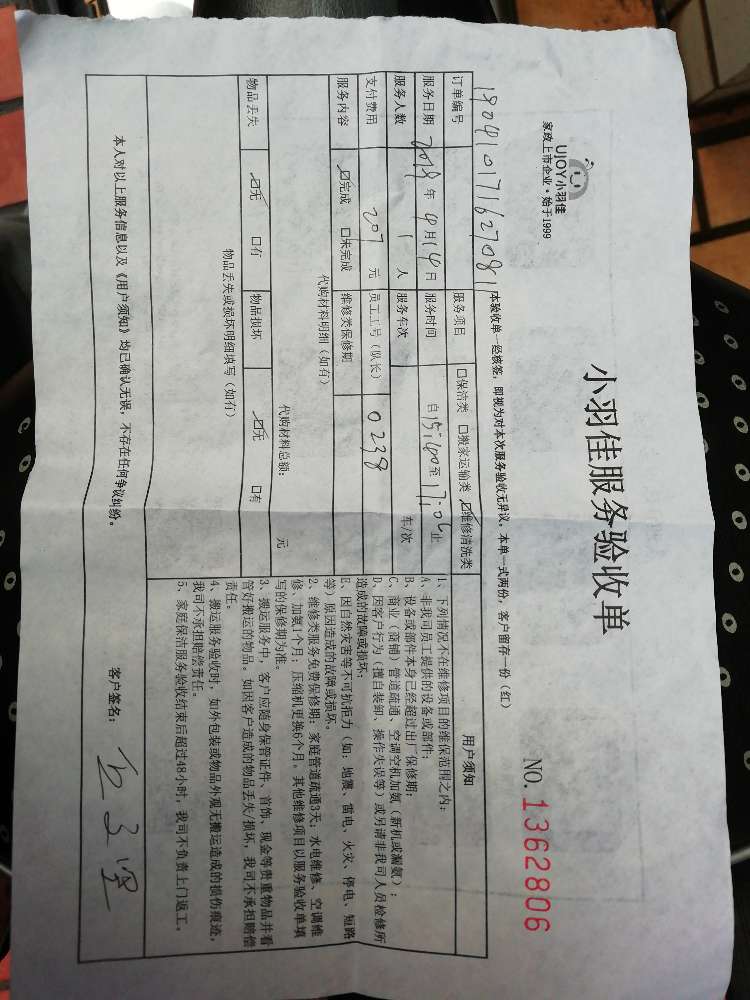 UJOY小羽佳
家政上市企业·始于1999
小羽佳服务验收单
NO.1362806
本验收单一经核签，即视为对本次服务验收无异议，本单一式两份，客户留存一份（红）
订单编号 19041017162708 服务项目 口保洁类 口搬家运输类 ☑维修清洗类
服务日期 2019年4月14日 服务时间 自15:00至17:06止
服务人数 1人 服务车次 车/次
支付费用 207元 员工工号（队长） 0238
服务内容 ☑完成 口未完成 维修类保修期
代购材料明细（如有）
代购材料总额： 元
物品丢失 ☑无 口有 物品损坏 ☑无 口有
物品丢失或损坏明细填写（如有）
用户须知
1、下列情况不在维修项目的维保范围之内：
A、非我司员工提供的设备或部件；
B、设备或部件本身已经超过出厂保修期；
C、商业（商铺）管道疏通、空调空机加氨（新机或漏氨）；
D、因客户行为（擅自装卸、操作失误等）或另请非我司人员检修所
造成的故障或损坏；
E、因自然灾害等不可抗拒力（如：地震、雷电、火灾、停电、短路
等）原因造成的故障或损坏。
2、维修类服务免费保修期：家庭管道疏通3天；水电维修、空调维
修、加氨1个月；压缩机更换6个月，其他维修项目以服务验收单填
写的保修期为准。
3、搬运服务中，客户应随身保管证件、首饰、现金等贵重物品并看
管好搬运的物品。如因客户造成的物品丢失/损坏，我司不承担赔偿
责任。
4、搬运服务验收时，如外包装或物品外观无搬运造成的损伤痕迹，
我司不承担赔偿责任。
5、家庭保洁服务验收结束后超过48小时，我司不负责上门返工。
本人对以上服务信息以及《用户须知》均已确认无误，不存在任何争议纠纷。
客户签名：